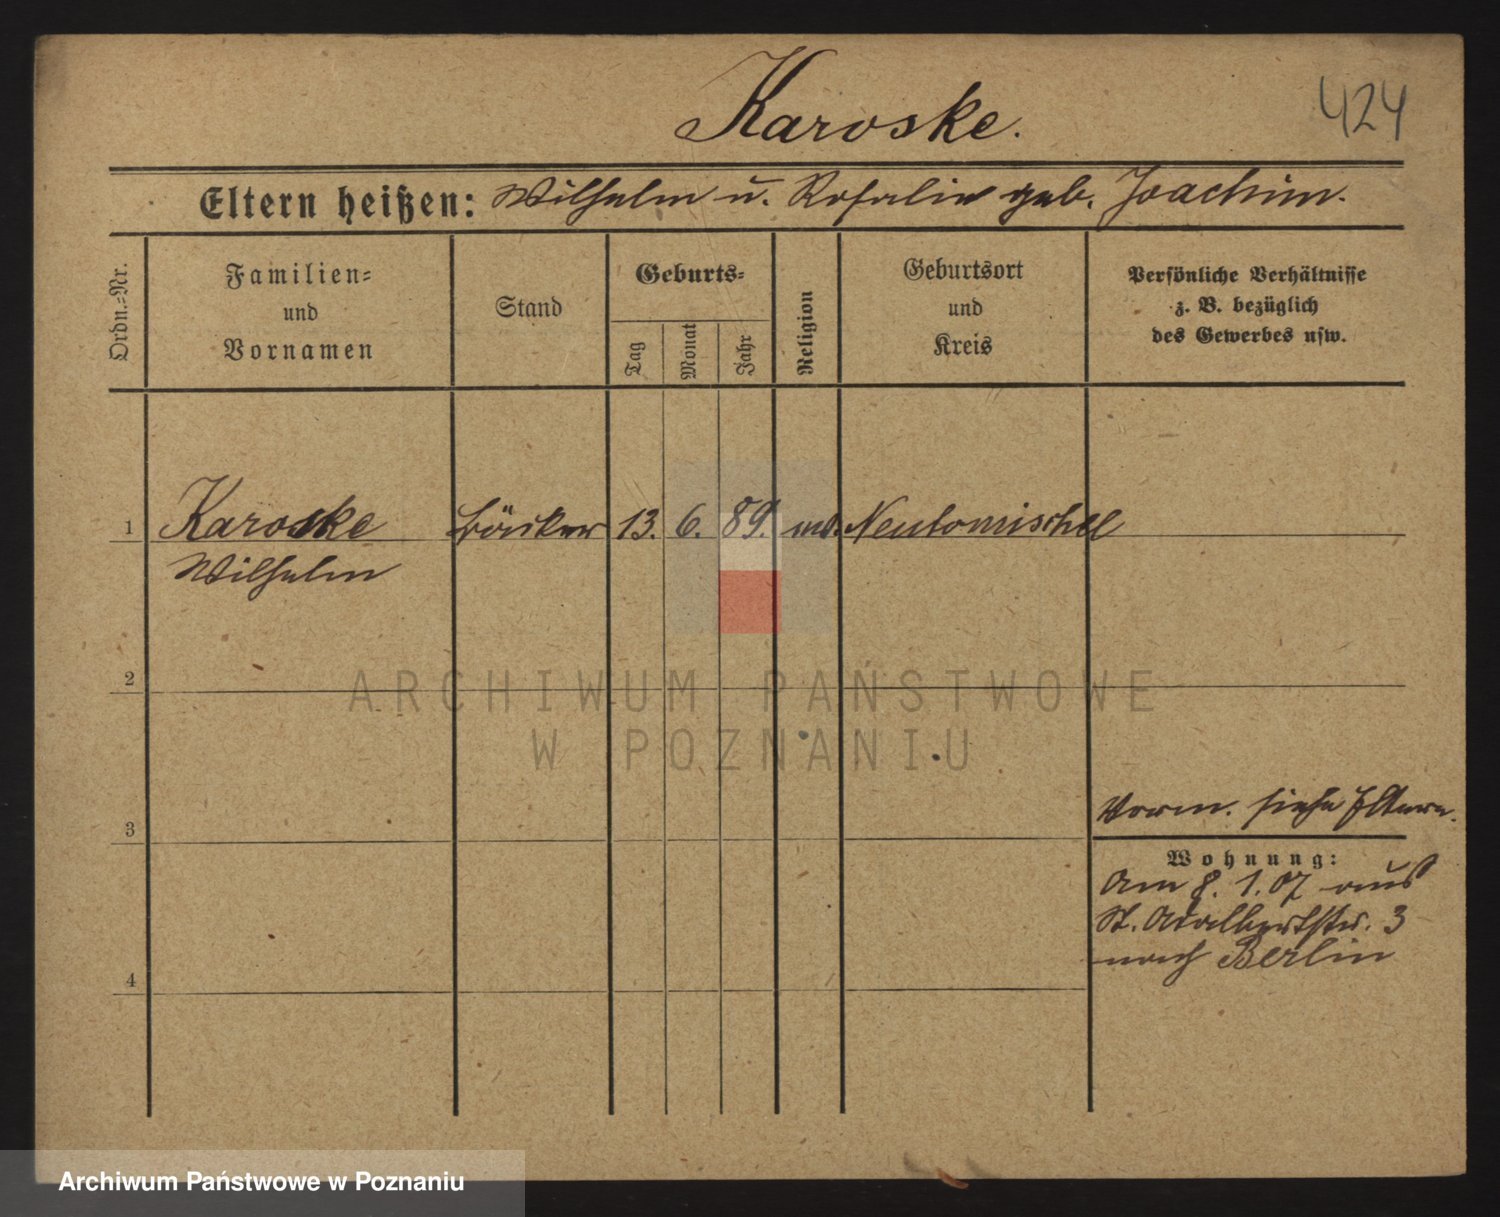 Karoske.
424
Eltern heißen: Wilhelm u. Rosalie geb. Joachim.
Ordn.-Nr.
Familien-
und
Vornamen
Stand
Geburts-
Tag
Monat
Jahr
Religion
Geburtsort
und
Kreis
Persönliche Verhältnisse
z. B. bezüglich
des Gewerbes usw.
1 Karoske Bäcker 13. 6. 89. Neutomischel
Wilhelm
2
ARCHIWUM PAŃSTWOWE
W POZNANIU
3
Vorm. siehe Eltern.
Wohnung:
Am 8. 1. 07 aus
St. Adalbertstr. 3
nach Berlin
4
Archiwum Państwowe w Poznaniu